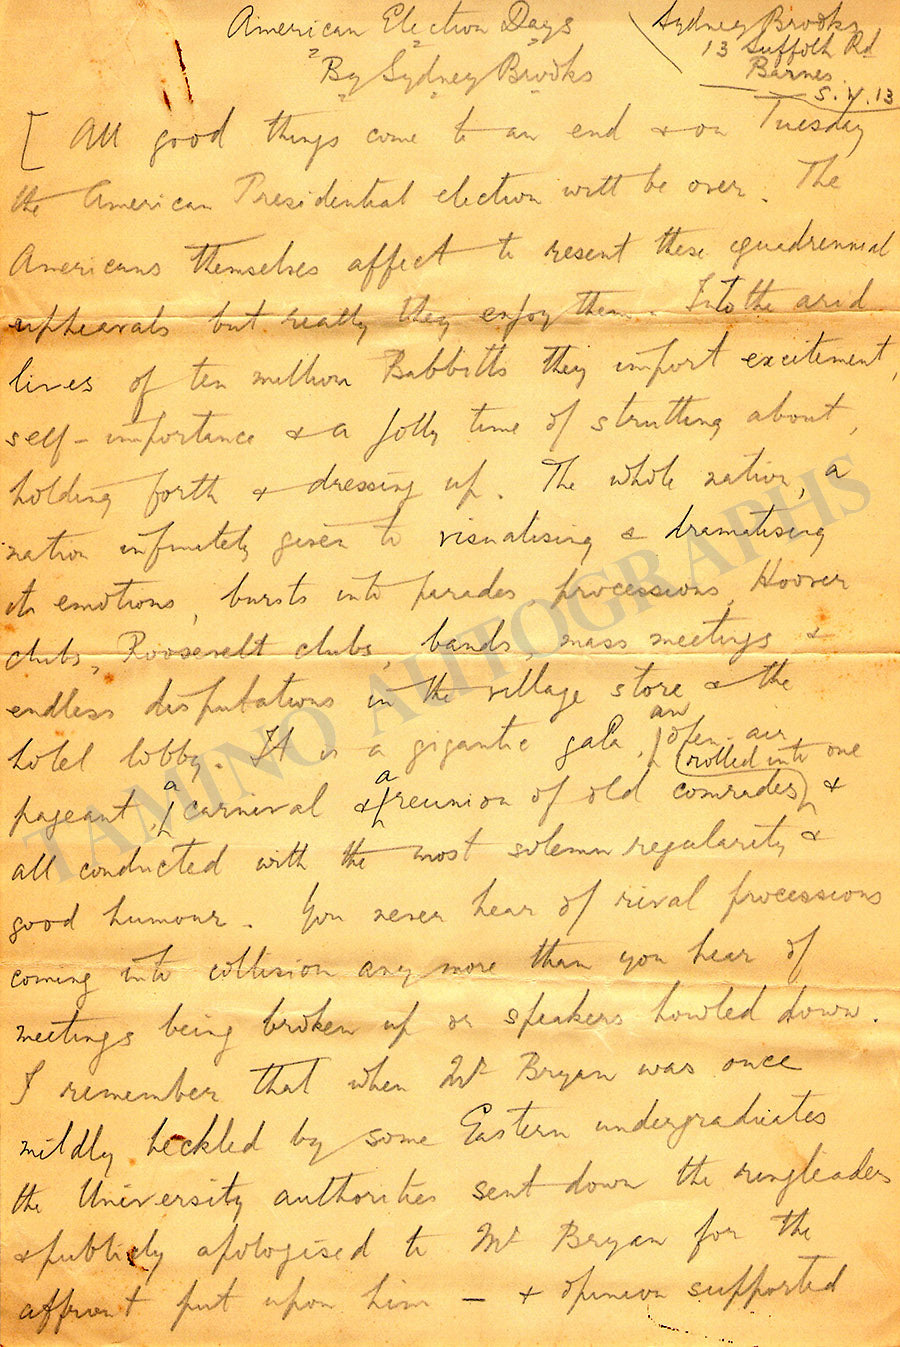 American Election Days
By Sydney Brooks
Sydney Brooks
13 Suffolk Rd
Barnes
S.W.13
[ All good things come to an end & on Tuesday
the American Presidential election will be over. The
Americans themselves affect to resent these quadrennial
upheavals but really they enjoy them. Into the arid
lives of ten million Babbitts they import excitement,
self-importance & a jolly time of strutting about,
holding forth & dressing up. The whole nation, a
nation infinitely given to visualising & dramatising
its emotions, bursts into parades processions, Hoover
clubs, Roosevelt clubs, bands, mass meetings &
endless disputations in the village store & the
hotel lobby. It is a gigantic gala, an open air
pageant, a carnival & a reunion of old comrades rolled into one &
all conducted with the most solemn regularity &
good humour. You never hear of rival processions
coming into collision any more than you hear of
meetings being broken up or speakers howled down.
I remember that when Mr Bryan was once
mildly heckled by some Eastern undergraduates
the University authorities sent down the ringleaders
& publicly apologised to Mr Bryan for the
affront put upon him — & opinion supported
TAMINO AUTOGRAPHS